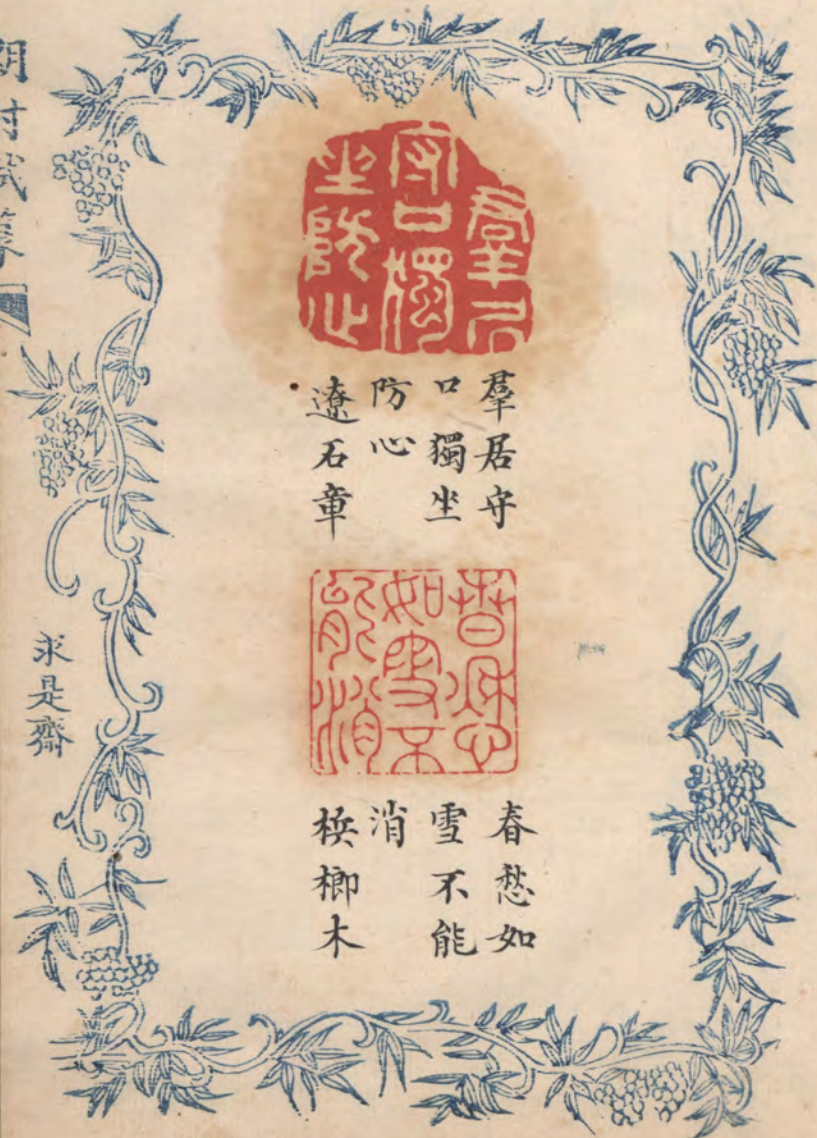 羣居
守口獨
坐防心
羣居守
口獨坐
防心
遼石章
春愁
如雪不
能消
春愁如
雪不能
消
梹榔木
求是齋